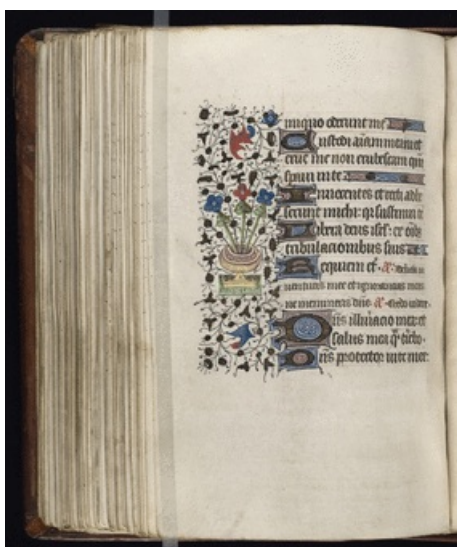 iniquo oderunt me
Custodi aiam meam et
erue me non erubescam qm
spaui in te
Innocentes et recti adhe
serunt michi: qr sustinui te
Libera deus isrl: ex oibz
tribulacionibus suis
Requiem et. Delicta iu
uentutis mee et ignorancias meas
ne memineris dne. Credo videre.
Dns illuminacio mea et
salus mea que timebo.
Dns protector uite mee: